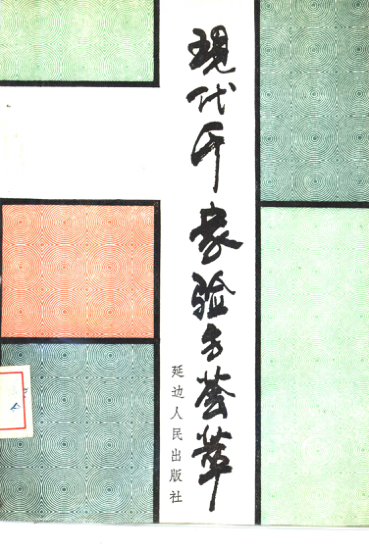 现代千家验方荟萃
延边人民出版社